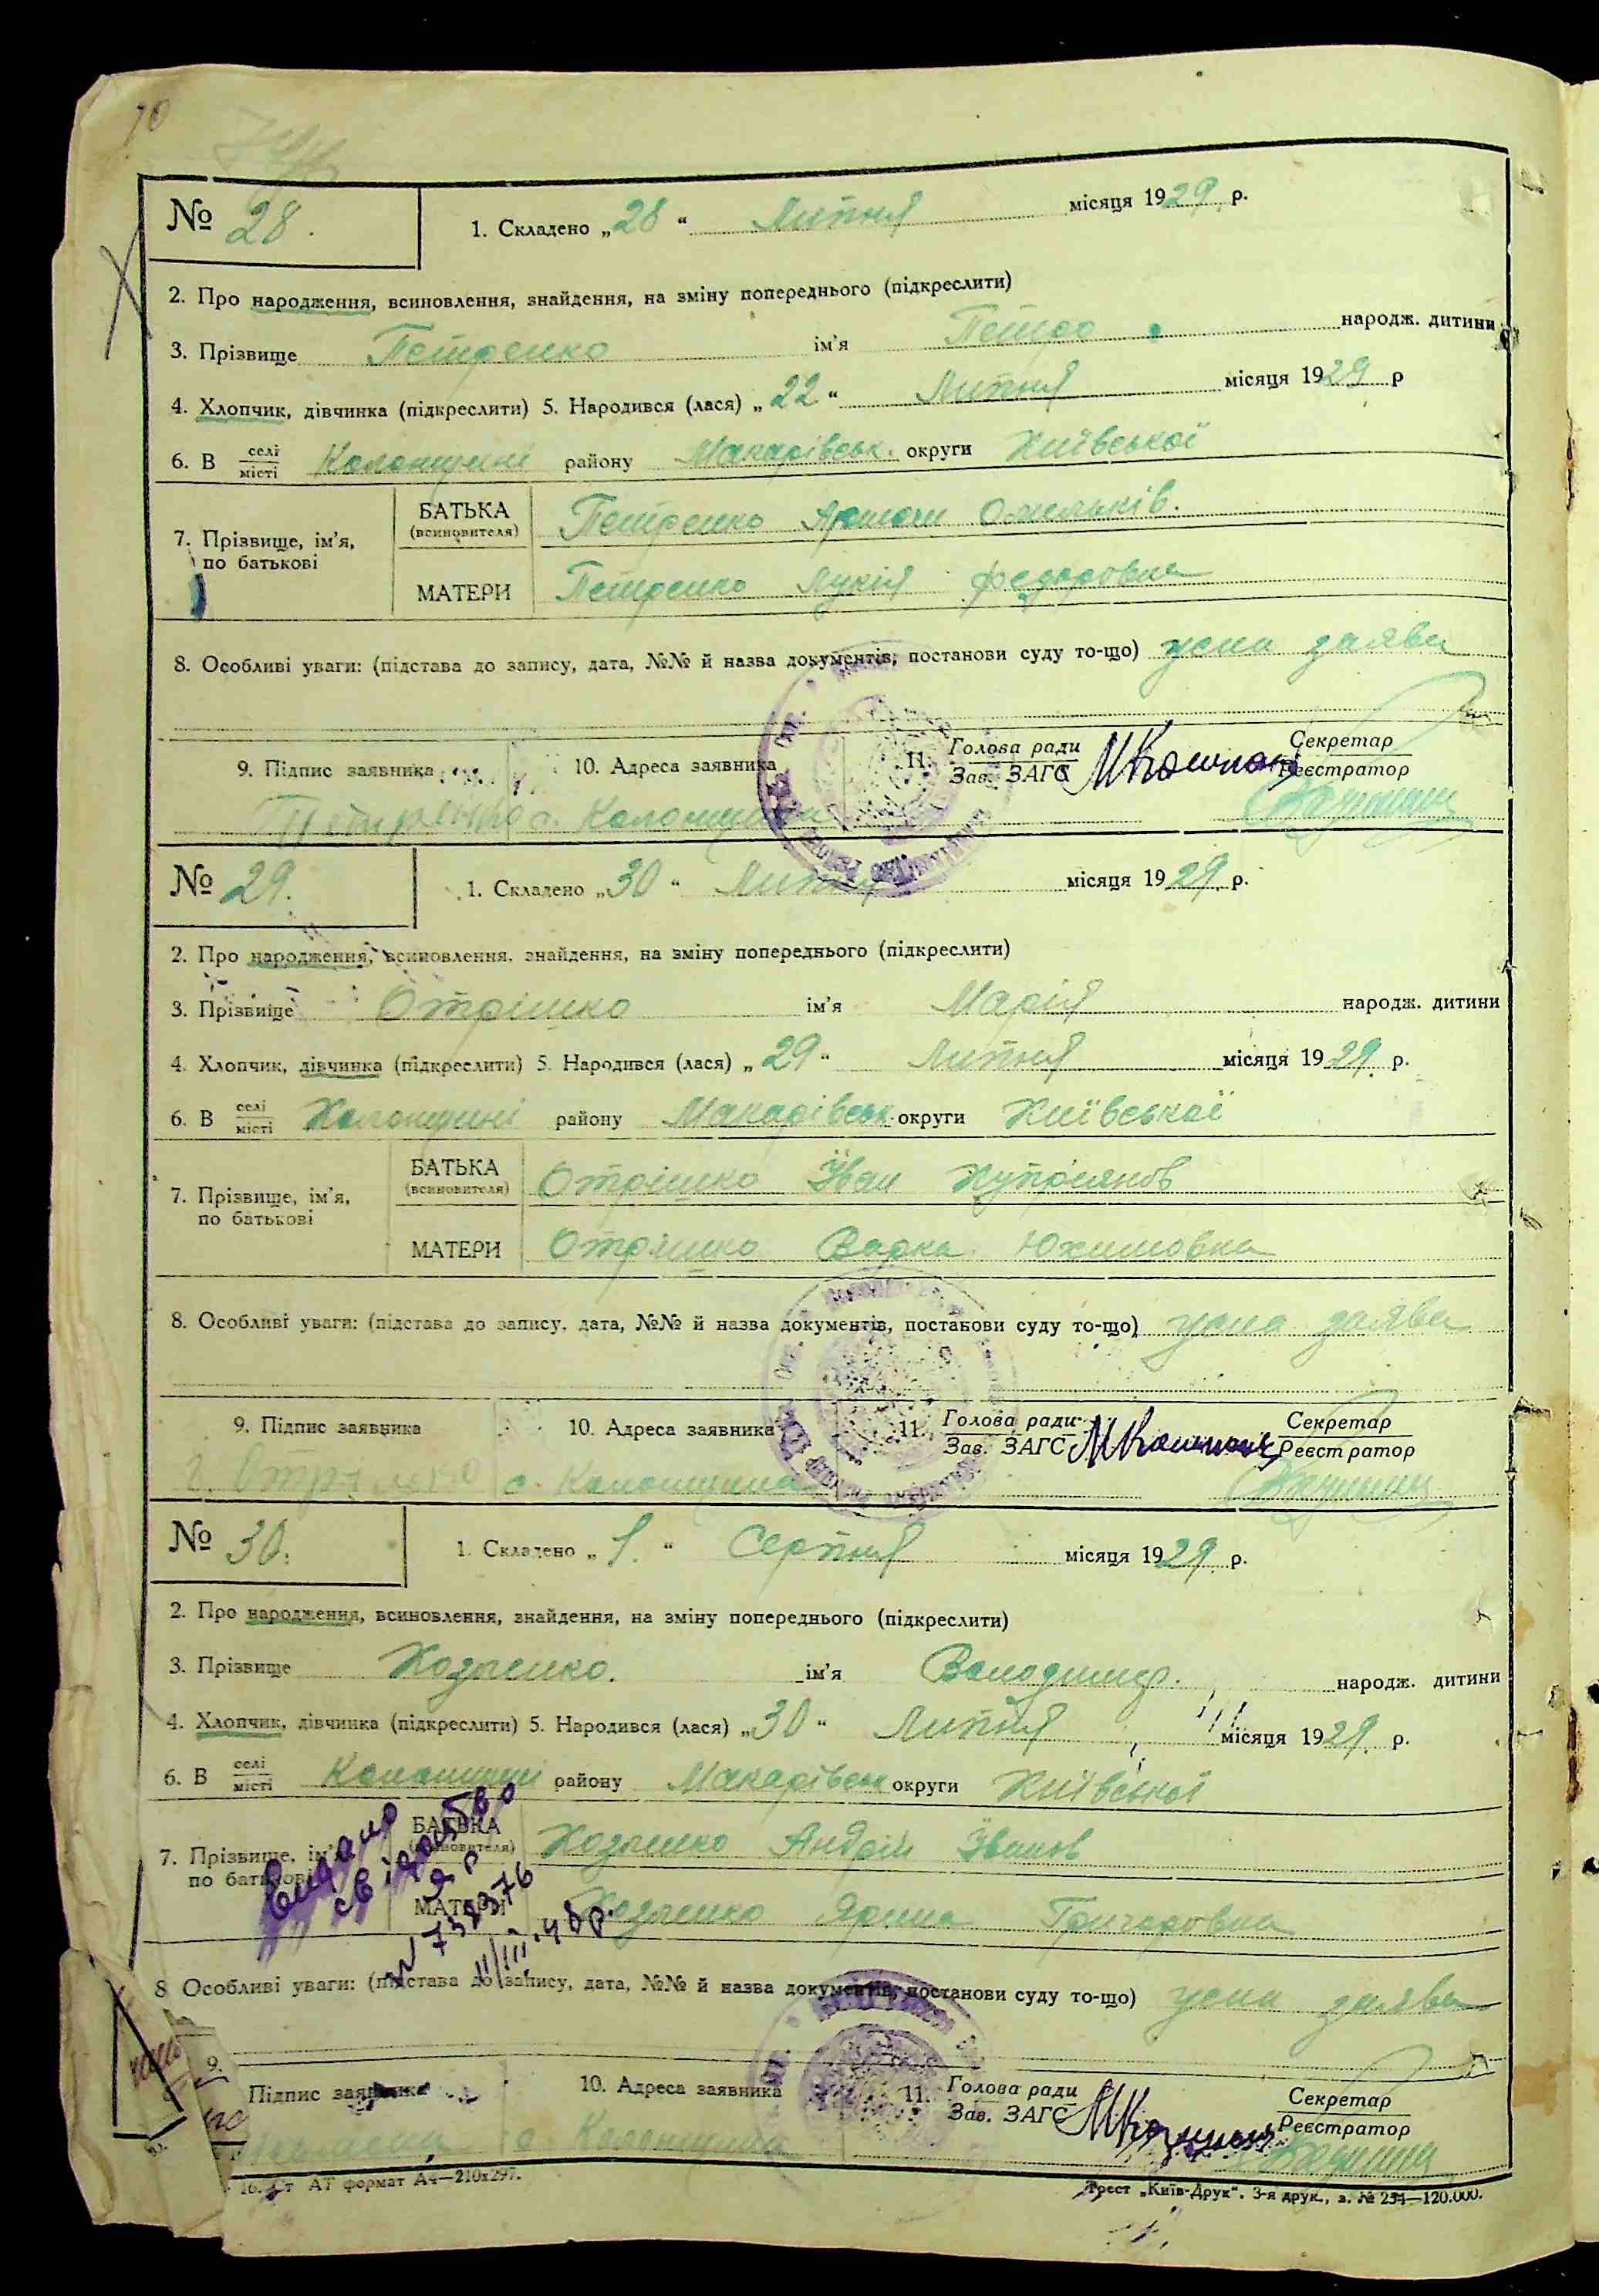 70
№ 28.
1. Складено „28“ Липня місяця 1929 р.
2. Про народження, всиновлення, знайдення, на зміну попереднього (підкреслити)
3. Прізвище Петренко ім'я Петро народж. дитини
4. Хлопчик, дівчинка (підкреслити) 5. Народився (лася) „22“ Липня місяця 1929 р
6. В селі місті Колонщині району Макарівськ. округи Київської
7. Прізвище, ім'я, по батькові
БАТЬКА (всиновителя) Петренко
МАТЕРИ Петренко Лукія Федоровна
8. Особливі уваги: (підстава до запису, дата, №№ й назва документів, постанови суду то-що) усна заява
9. Підпис заявника 10. Адреса заявника 11. Голова ради Зав. ЗАГС Секретар Реєстратор
Петренко с. Колонщина
№ 29.
1. Складено „30“ Липня місяця 1929 р.
2. Про народження, всиновлення. знайдення, на зміну попереднього (підкреслити)
3. Прізвище Отрішко ім'я Марія народж. дитини
4. Хлопчик, дівчинка (підкреслити) 5. Народився (лася) „29“ Липня місяця 1929 р.
6. В селі місті Колонщині району Макарівськ. округи Київської
7. Прізвище, ім'я, по батькові
БАТЬКА (всиновителя) Отрішко Іван Купріянов
МАТЕРИ Отрішко Варка Юхимовна
8. Особливі уваги: (підстава до запису, дата, №№ й назва документів, постанови суду то-що) усна заява
9. Підпис заявника 10. Адреса заявника 11. Голова ради Зав. ЗАГС Секретар Реєстратор
с. Колонщина
№ 30.
1. Складено „1.“ Серпня місяця 1929 р.
2. Про народження, всиновлення, знайдення, на зміну попереднього (підкреслити)
3. Прізвище ім'я Володимир. народж. дитини
4. Хлопчик, дівчинка (підкреслити) 5. Народився (лася) „30“ Липня місяця 1929 р.
6. В селі місті Колонщині району Макарівськ округи Київської
7. Прізвище, ім'я, по батькові
БАТЬКА (всиновителя) Андрій Іванов
МАТЕРИ Ярина
Видано свідоцтво
11/III.
8 Особливі уваги: (підстава до запису, дата, №№ й назва документів, постанови суду то-що) усна заява
9. Підпис заявника 10. Адреса заявника 11. Голова ради Зав. ЗАГС Секретар Реєстратор
с. Колонщина
16. Ст АТ формат А4—210x297.
Трест „Київ-Друк“. 3-я друк., з. № 234—120.000.